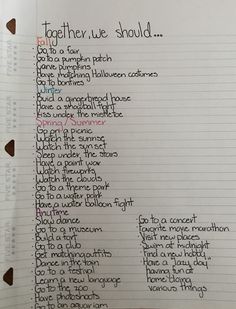 Together, we should...
Fall
Go to a fair
Go to a pumpkin patch
Carve pumpkins
Have matching Halloween costumes
Go to bonfires
Winter
Build a gingerbread house
Have a snowball fight
Kiss under the mistletoe
Spring/Summer
Go on a picnic
Watch the sunrise
Watch the sunset
Sleep under the stars
Have a paint war
Watch fireworks
Watch the clouds
Go to a theme park
Go to a water park
Have a water balloon fight
Anytime
Slow dance
Go to a museum
Build a fort
Go to a club
Get matching outfits
Dance in the rain
Go to a festival
Learn a new language
Go to the zoo
Have photoshoots
Go to an aquarium
Go to a concert
Favorite movie marathon
Visit new places
Swim at midnight
Find a new hobby
Have a "lazy day"
having fun at
home doing
various things